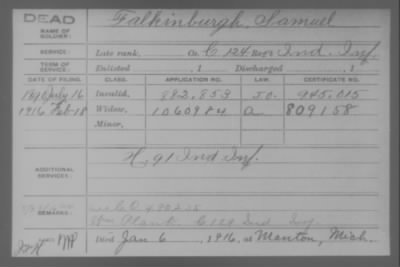 DEAD
NAME OF SOLDIER: Falkinburgh, Samuel
SERVICE: Late rank, Co. C, 124 Reg't Ind. Inf.
TERM OF SERVICE: Enlisted , 1 Discharged , 1
DATE OF FILING. CLASS. APPLICATION NO. LAW. CERTIFICATE NO.
1890 July 16 Invalid, 882,853 J.O. 945,015
1916 Feb 18 Widow, 1060984 a 809158
Minor,
ADDITIONAL SERVICES: H, 91 Ind Inf.
REMARKS: C.O.
C 129 Ind Inf
Died Jan 6, 1916, at Manton, Mich.